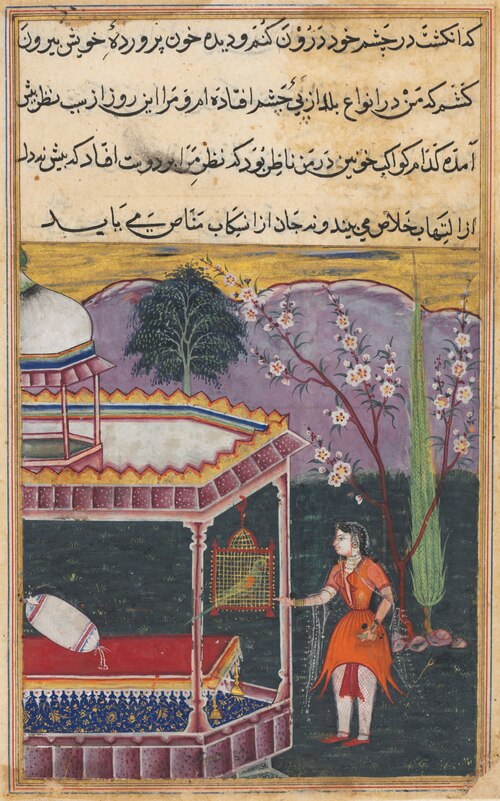 که انگشت در چشم خود درون کنم و دیده خون پروردهٔ خویش بیرون
کنم که من در انواع بلا از پی چشم افتاده ام و مرا این روز از سبب نظر پیش
آمده کدام کواکب در من ناظر بود که نظر مرا بود افتاد که پیش نه دل
از التهاب خلاص می بیند و نه جان از می یابد